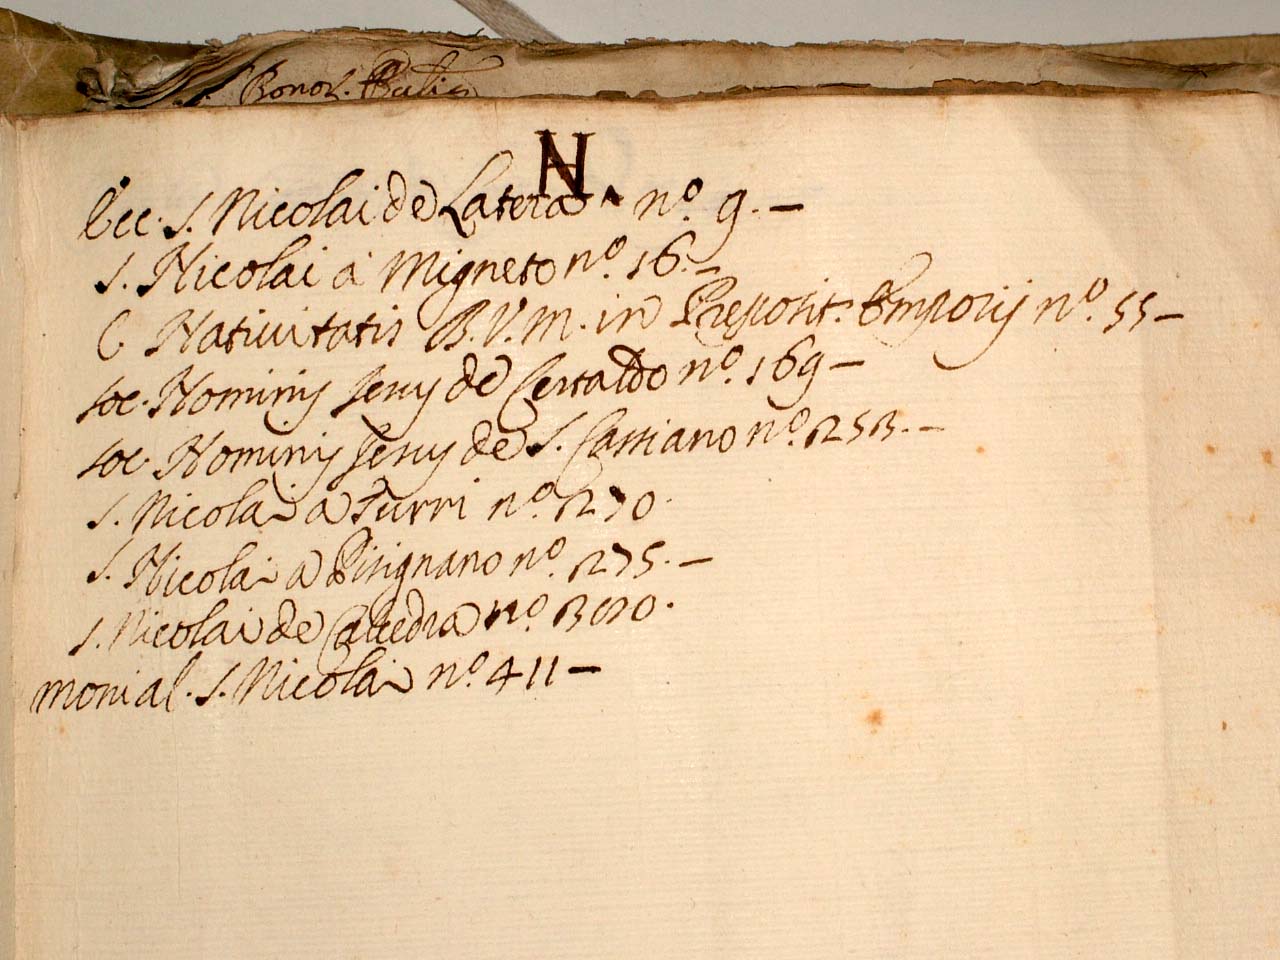 Bonor. Public
N.
Ecc. S. Nicolai de Latera nº. 9. —
S. Nicolai a Migneto nº. 16. —
C. Nativitatis B.V.M. in Preposit. Emporij nº. 55 —
soc. Nominis Jesu de Certaldo nº. 169 —
soc. Nominis Jesu de S. Cassiano nº. 253. —
S. Nicolai a Turri nº. 270.
S. Nicolai a Pisignano nº. 275. —
S. Nicolai de nº.
monial. S. Nicolai nº. 411 —